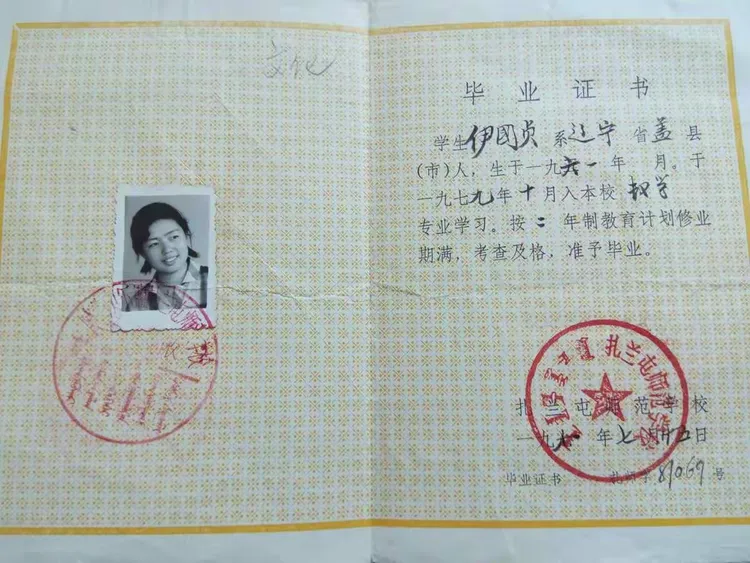 文化
毕业证书
学生伊国贞系辽宁省盖县
(市)人，生于一九六一年 月。于
一九七九年十月入本校 数学
专业学习。按二年制教育计划修业
期满，考查及格，准予毕业。
扎兰屯师范学校
扎兰屯师范学校
一九八一年七月廿五日
毕业证书 扎师字81069号